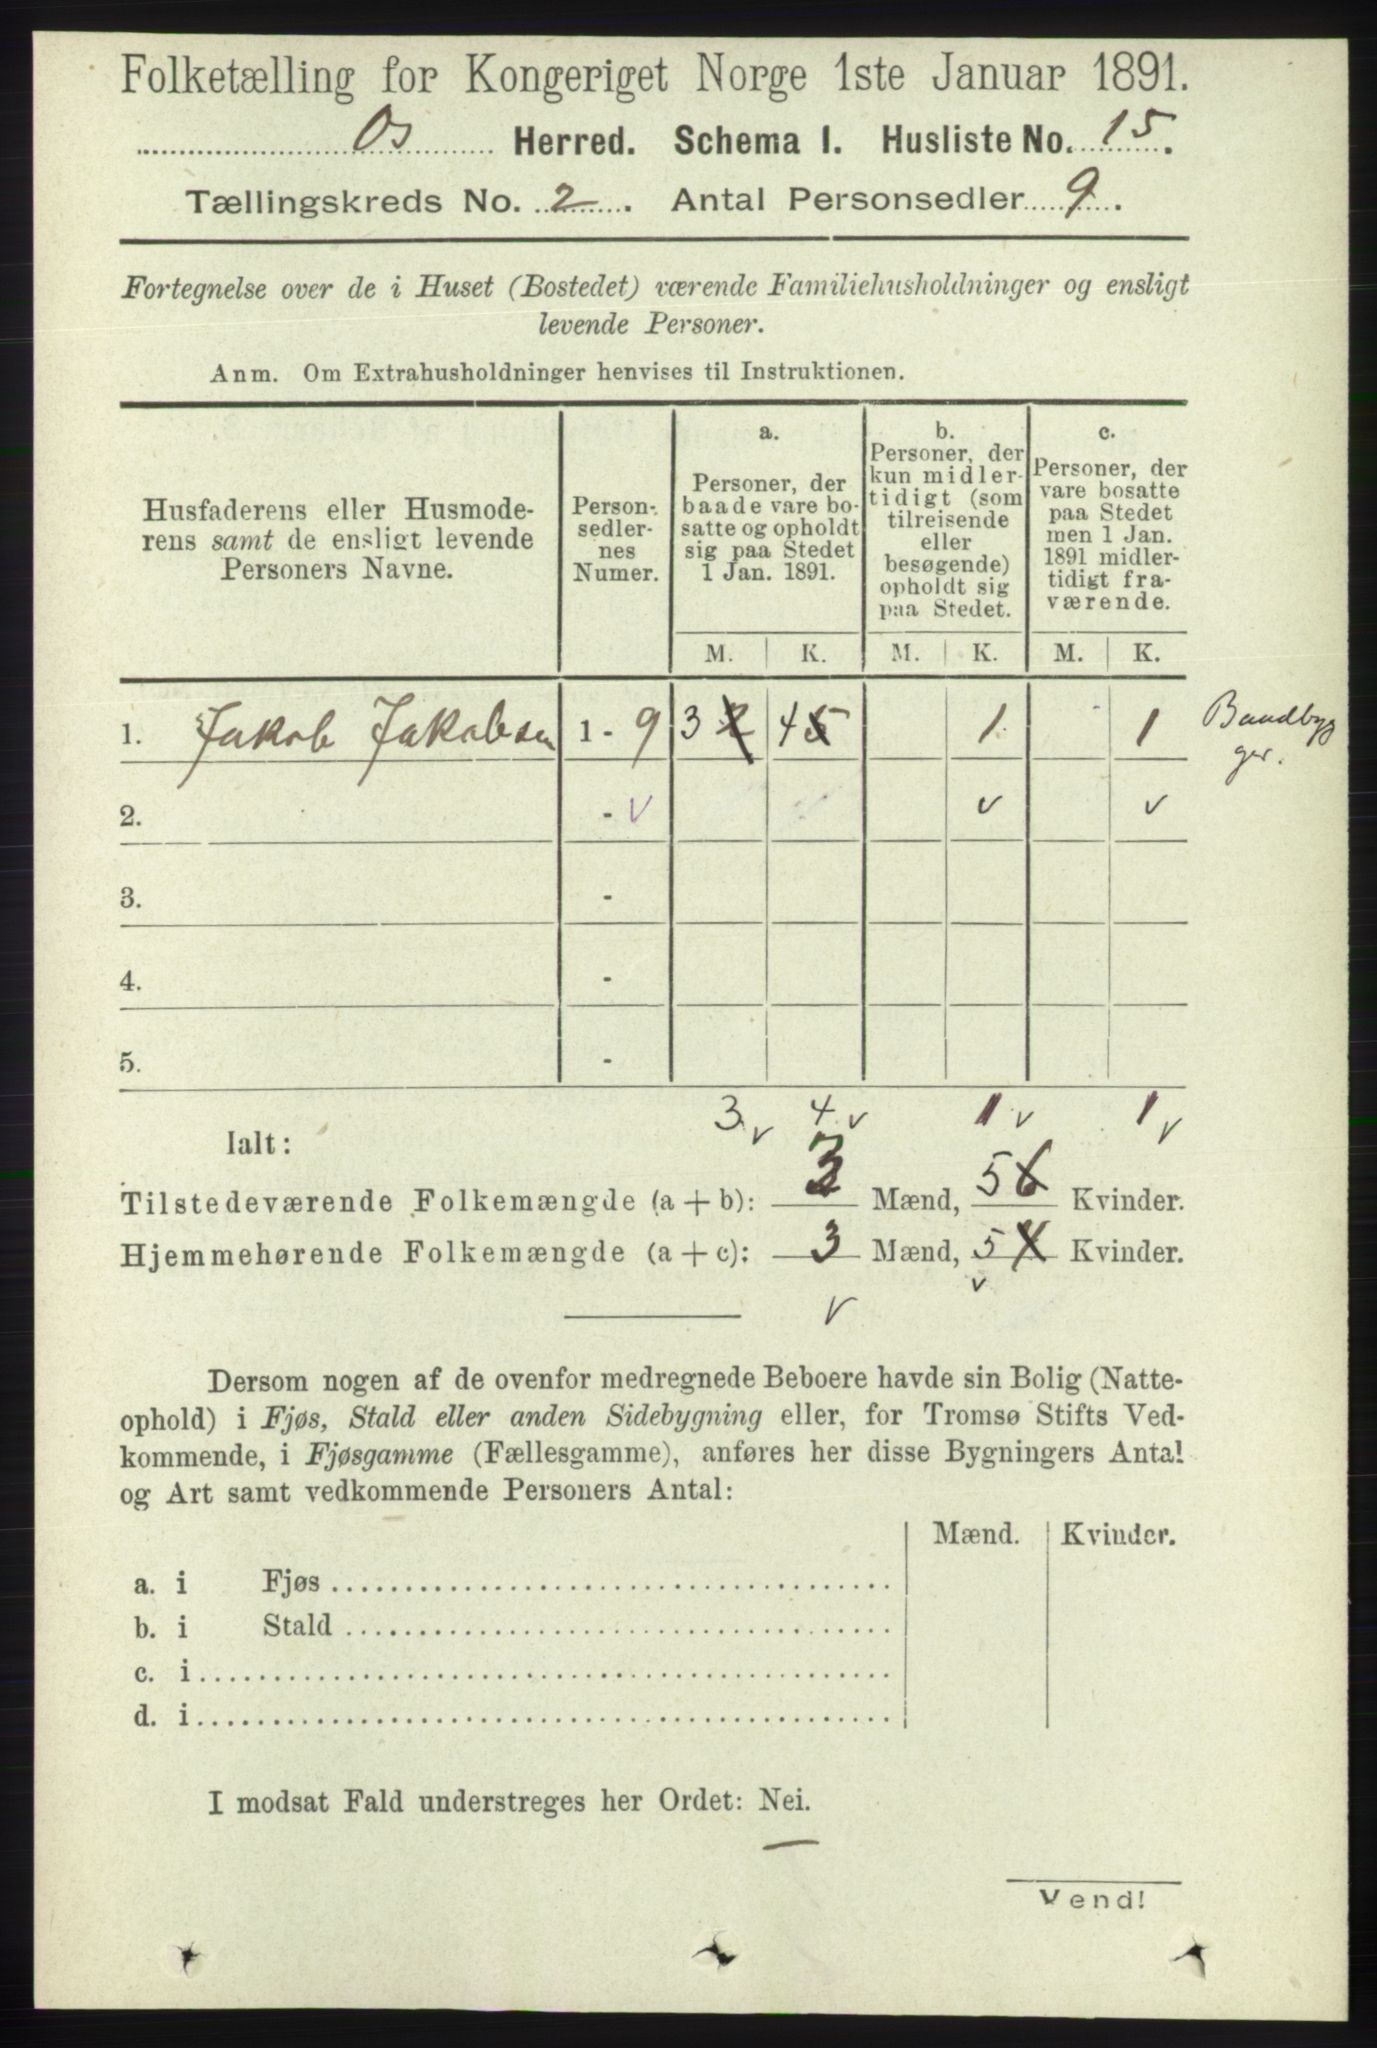 Folketælling for Kongeriget Norge 1ste Januar 1891.
Os Herred. Schema I. Husliste No. 15.
Tællingskreds No. 2. Antal Personsedler 9.
Fortegnelse over de i Huset (Bostedet) værende Familiehusholdninger og ensligt
levende Personer.
Anm. Om Extrahusholdninger henvises til Instruktionen.
Husfaderens eller Husmode-
rens samt de ensligt levende
Personers Navne.
Person-
sedler-
nes
Numer.
a.
Personer, der
baade vare bo-
satte og opholdt
sig paa Stedet
1 Jan. 1891.
b.
Personer, der
kun midler-
tidigt (som
tilreisende
eller
besøgende)
opholdt sig
paa Stedet.
c.
Personer, der
vare bosatte
paa Stedet
men 1 Jan.
1891 midler-
tidigt fra-
værende.
M. K. M. K. M. K.
1. Jakob Jakobsen 1 - 9 3 2 4 5 1 1
Baadbyg
ger.
2. - v v v
3. -
4. -
5. -
3 v 4 v 1 v 1 v
Ialt:
Tilstedeværende Folkemængde (a + b): 3 Mænd, 5 6 Kvinder.
Hjemmehørende Folkemængde (a + c): 3 Mænd, 5 4 Kvinder.
v v
Dersom nogen af de ovenfor medregnede Beboere havde sin Bolig (Natte-
ophold) i Fjøs, Stald eller anden Sidebygning eller, for Tromsø Stifts Ved-
kommende, i Fjøsgamme (Fællesgamme), anføres her disse Bygningers Antal
og Art samt vedkommende Personers Antal:
Mænd. Kvinder.
a. i Fjøs
b. i Stald
c. i
d. i
I modsat Fald understreges her Ordet: Nei.
Vend!